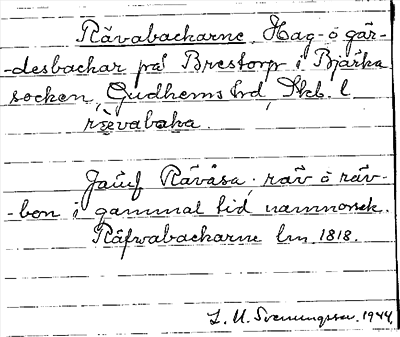 Rävabackarne. Hag- o gär-
-desbackar på Brestorp i Bjärka
socken, Gudhems hrd, Skb. l
rævabaka.
Jämf Rävåsa; räv o räv-
-bon i gammal tid namnorsak.
Räfwabackarne lm 1818.
L. M. Svenungsson. 1944.